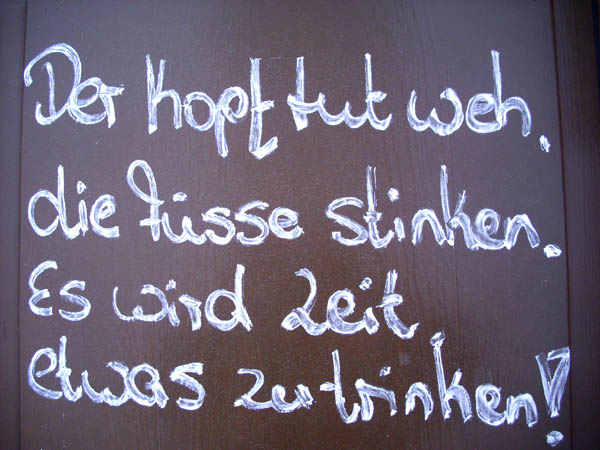 Der Kopf tut weh.
die füsse stinken.
Es wird Zeit
etwas zu trinken!